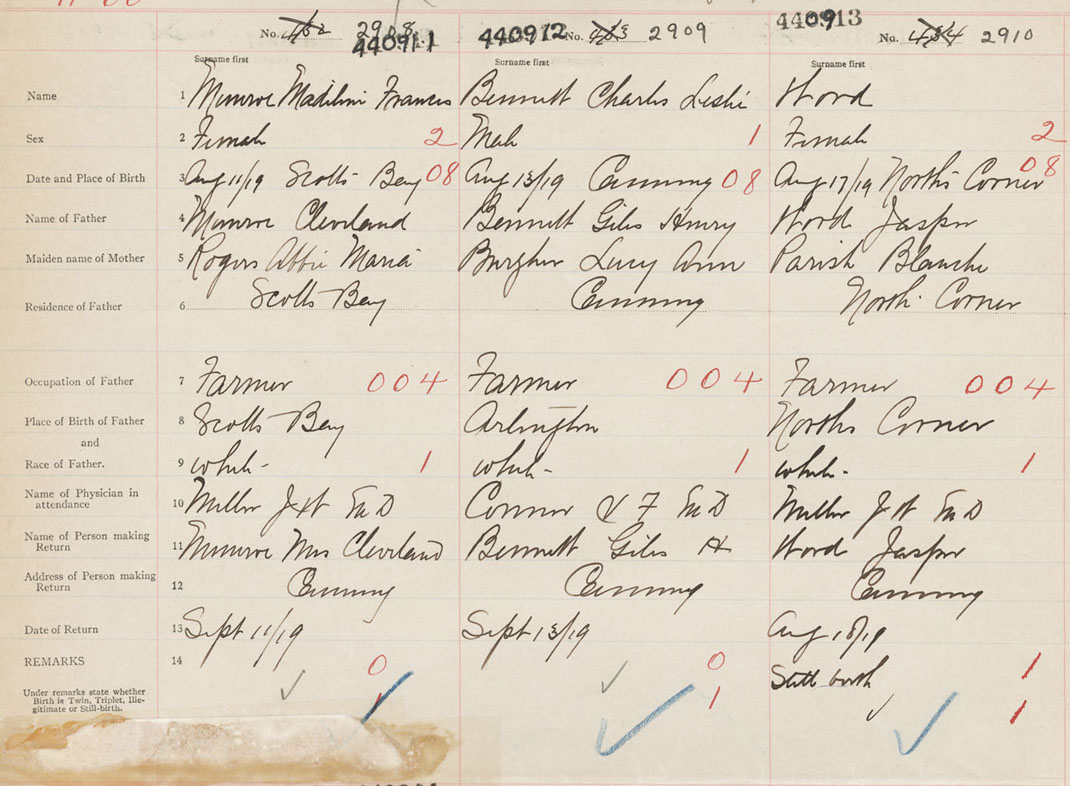 No. 452 2908 440911
440912 No. 453 2909
440913 No. 454 2910
Surname first Surname first Surname first
Name 1 Munroe Madiline Frances Bennett Charles Leslie Wood
Sex 2 Female 2 Male 1 Female 2
Date and Place of Birth 3 Aug 11/19 Scotts Bay 08 Aug 13/19 Canning 08 Aug 17/19 North's Corner 08
Name of Father 4 Munroe Cleveland Bennett Giles Henry Wood Jasper
Maiden name of Mother 5 Rogers Abbie Maria Lucy Ann Parish Blanche
Residence of Father 6 Scotts Bay Canning North. Corner
Occupation of Father 7 Farmer 004 Farmer 004 Farmer 004
Place of Birth of Father 8 Scotts Bay Arlington Norths Corner
and
Race of Father. 9 white 1 white 1 white 1
Name of Physician in
attendance 10 Miller J W M D Connor F M D Miller J W M D
Name of Person making
Return 11 Munroe Mrs Cleveland Bennett Giles H Wood Jasper
Address of Person making
Return 12 Canning Canning Canning
Date of Return 13 Sept 11/19 Sept 13/19 Aug 18/19
REMARKS 14 0 0 Still birth 1
Under remarks state whether
Birth is Twin, Triplet, Ille-
gitimate or Still-birth. 1 1 1